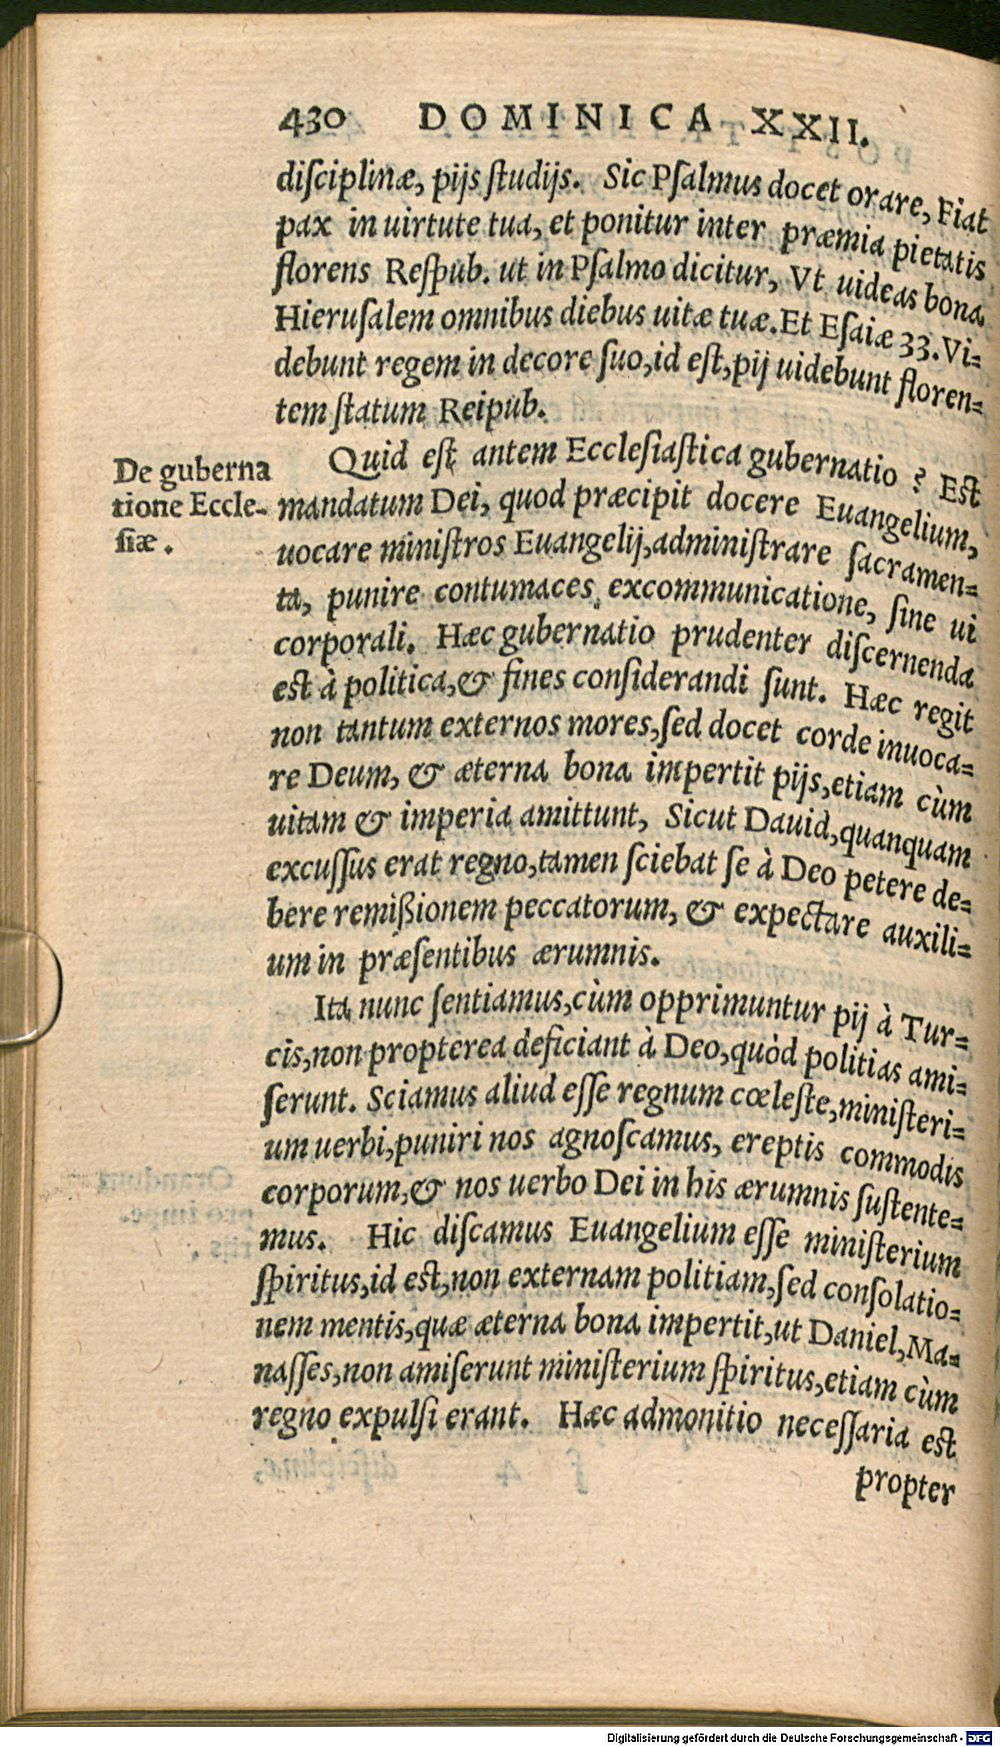 430 DOMINICA XXII.
diſciplinæ, pijs ſtudijs. Sic Pſalmus docet orare, Fiat
pax in uirtute tua, et ponitur inter præmia pietatis
florens Reſpub. ut in Pſalmo dicitur, Vt uideas bona
Hieruſalem omnibus diebus uitæ tuæ. Et Eſaiæ 33. Vi-
debunt regem in decore ſuo, id eſt, pij uidebunt floren-
tem ſtatum Reipub.
De guberna
tione Eccle-
ſiæ.
Quid eſt antem Eccleſiaſtica gubernatio? Eſt
mandatum Dei, quod præcipit docere Euangelium,
uocare miniſtros Euangelij, adminiſtrare ſacramen-
ta, punire contumaces excommunicatione, ſine ui
corporali. Hæc gubernatio prudenter diſcernenda
eſt à politica, & fines conſiderandi ſunt. Hæc regit
non tantum externos mores, ſed docet corde inuoca-
re Deum, & æterna bona impertit pijs, etiam cùm
uitam & imperia amittunt, Sicut Dauid, quanquam
excuſſus erat regno, tamen ſciebat ſe à Deo petere de-
bere remißionem peccatorum, & expectare auxili-
um in præſentibus ærumnis.
Ita nunc ſentiamus, cùm opprimuntur pij à Tur-
cis, non propterea deficiant à Deo, quòd politias ami-
ſerunt. Sciamus aliud eſſe regnum cœleſte, miniſteri-
um uerbi, puniri nos agnoſcamus, ereptis commodis
corporum, & nos uerbo Dei in his ærumnis ſuſtente-
mus. Hic diſcamus Euangelium eſſe miniſterium
ſpiritus, id eſt, non externam politiam, ſed conſolatio-
nem mentis, quæ æterna bona impertit, ut Daniel, Ma-
naſſes, non amiſerunt miniſterium ſpiritus, etiam cùm
regno expulſi erant. Hæc admonitio neceſſaria eſt
propter
Digitalisierung gefördert durch die Deutsche Forschungsgemeinschaft - DFG